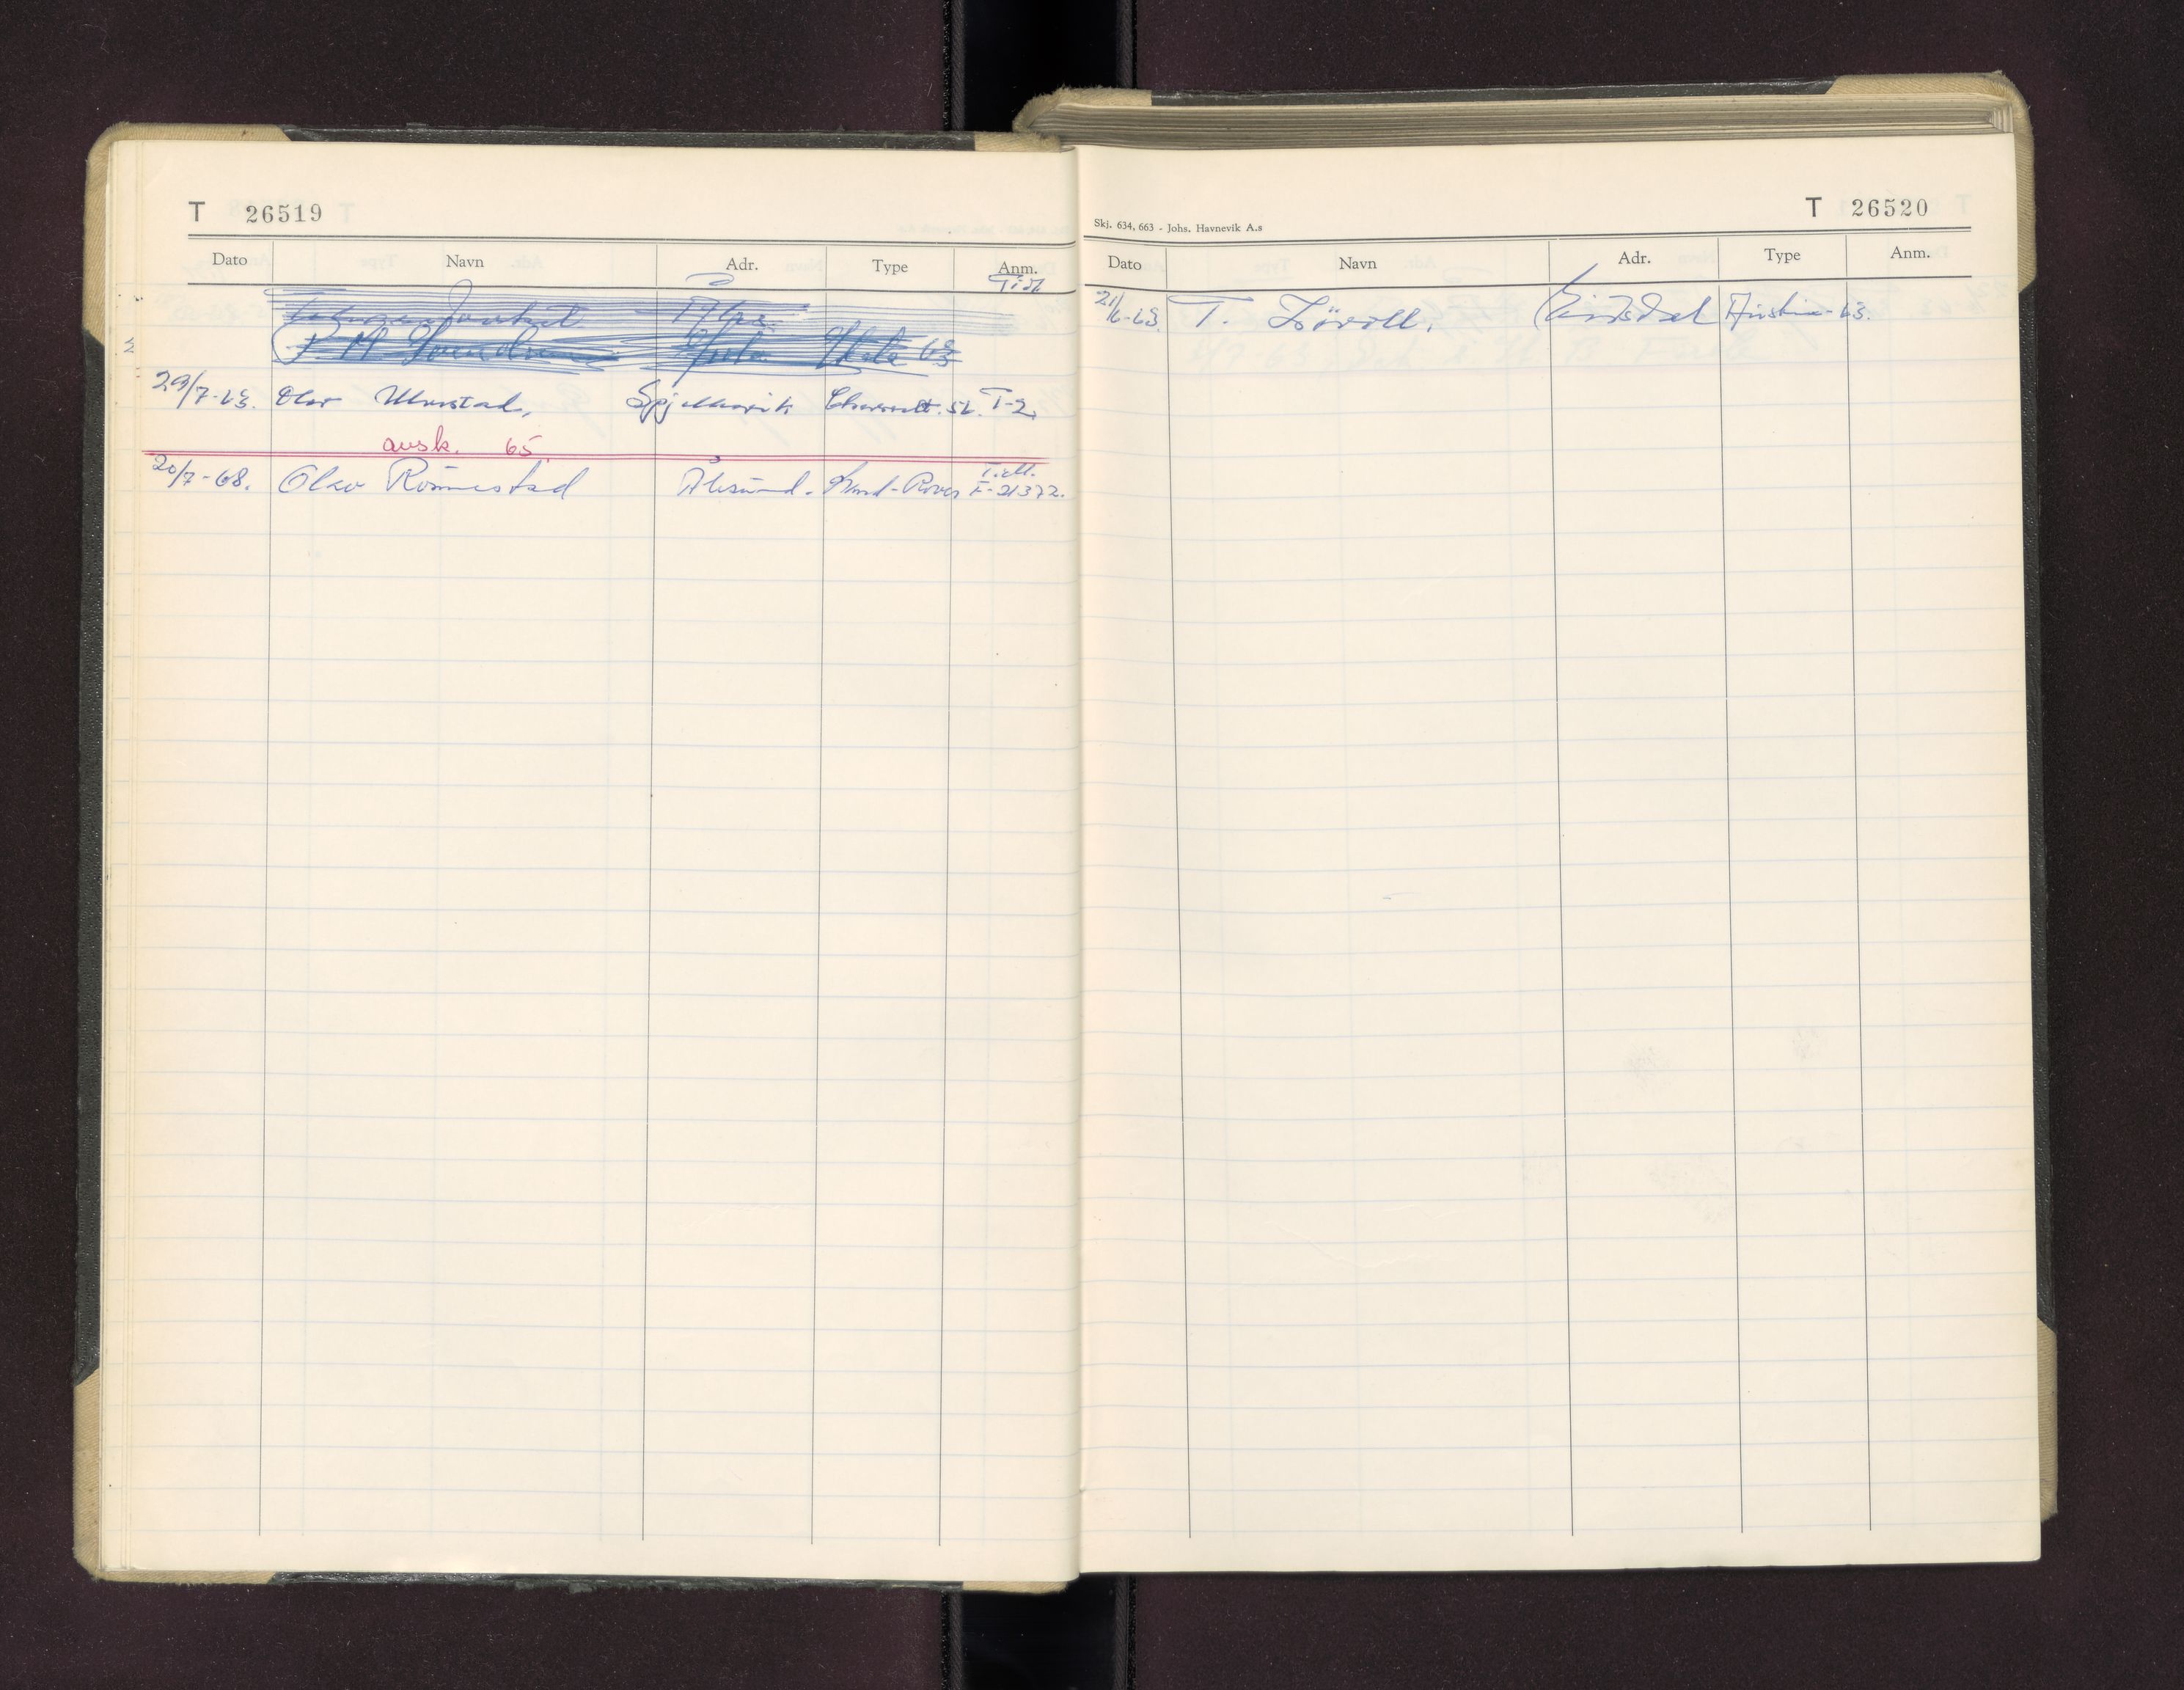 T 26519
Dato Navn Adr. Type Anm.
29/7-63. Olav Spjelkavik Chevrolet. 52. T-2.
avsk. 65.
T.dl.
20/7-68. Olav Rönnestad Ålesund. Land-Rover F-21372.
T 26520
Skj. 634, 663 - Johs. Havnevik A.s
Dato Navn Adr. Type Anm.
21/6-63. T. Lövoll. Eidsdal Austin-63.